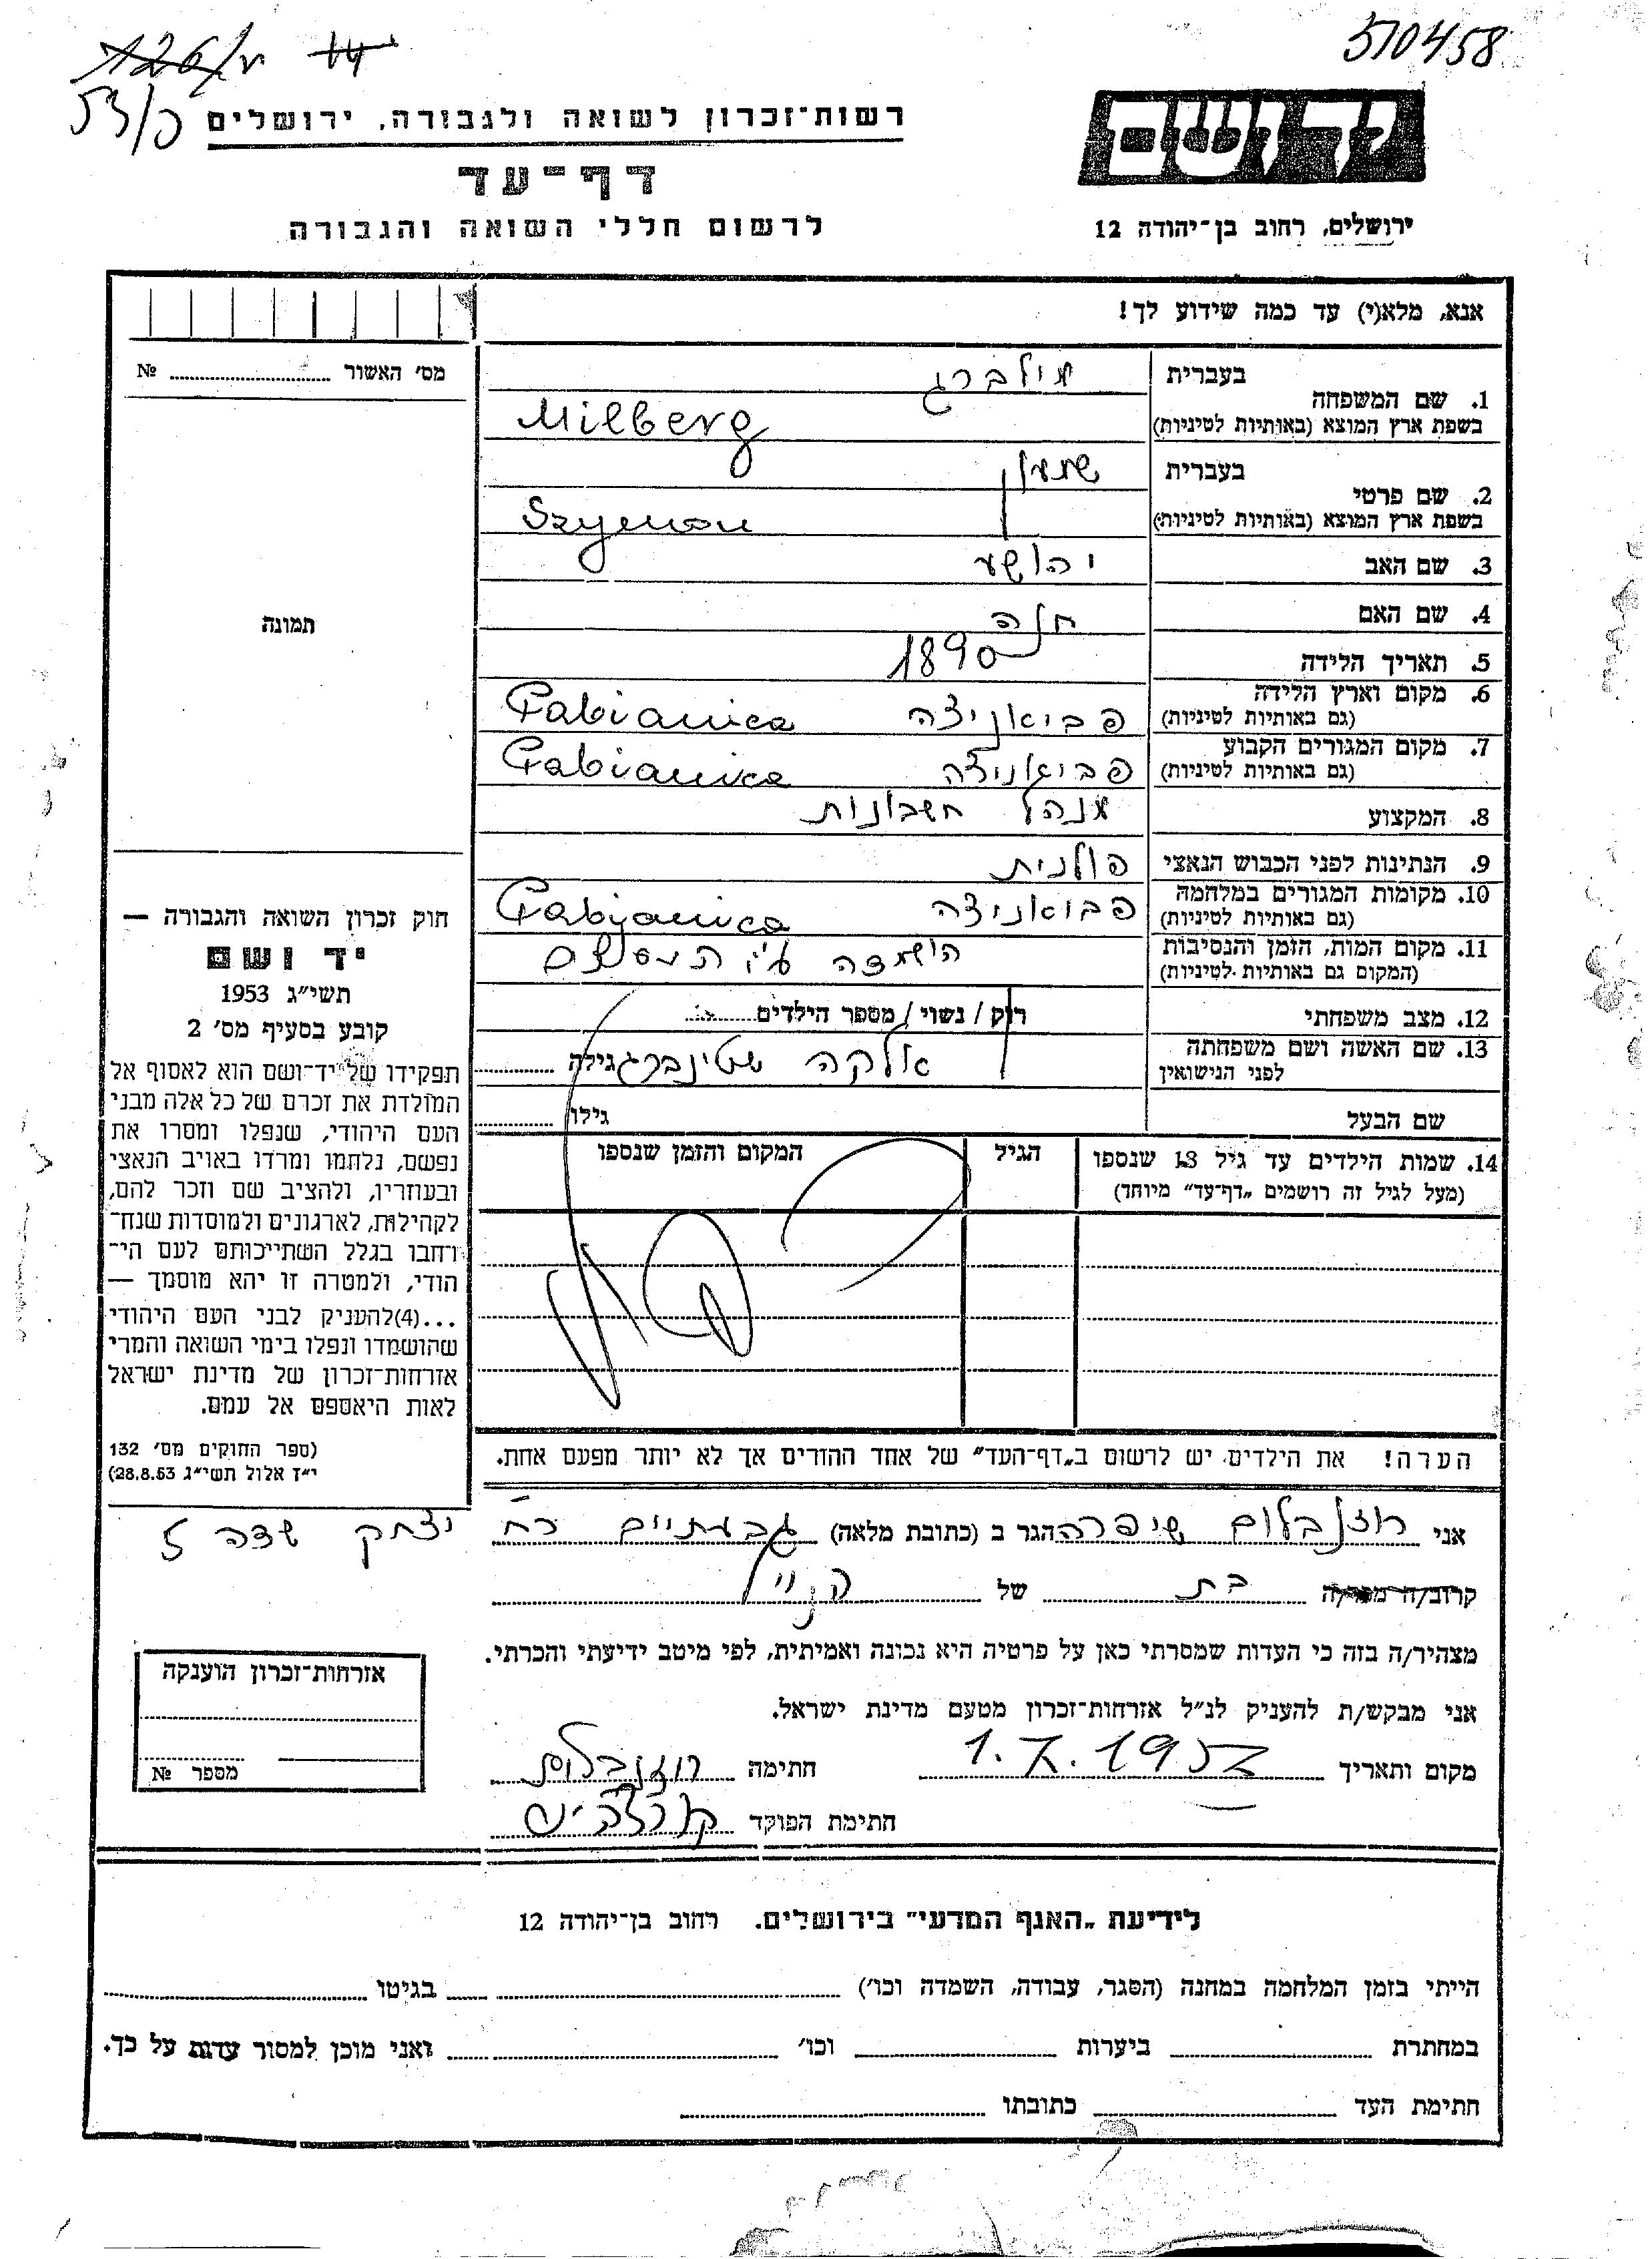 510458
53/פ
רשות־זכרון לשואה ולגבורה, ירושלים
דף־עד
לרשום חללי השואה והגבורה
יד ושם
ירושלים, רחוב בן־יהודה 12
אנא, מלא(י) עד כמה שידוע לך!
מס׳ האשור № 
תמונה
חוק זכרון השואה והגבורה —
יד ושם
תשי״ג 1953
קובע בסעיף מס׳ 2
תפקידו של יד־ושם הוא לאסוף אל
המולדת את זכרם של כל אלה מבני
העם היהודי, שנפלו ומסרו את
נפשם, נלחמו ומרדו באויב הנאצי
ובעוזריו, ולהציב שם וזכר להם,
לקהילות, לארגונים ולמוסדות שנח־
רחבו בגלל השתייכותם לעם הי־
הודי, ולמטרה זו יהא מוסמך —
...(4)להעניק לבני העם היהודי
שהושמדו ונפלו בימי השואה והמרי
אזרחות־זכרון של מדינת ישראל
לאות היאספם אל עמם.
(ספר החוקים מס׳ 132
י״ז אלול תשי״ג 28.8.53)
בעברית מילברג
1. שם המשפחה
בשפת ארץ המוצא (באותיות לטיניות) Milberg
בעברית שמעון
2. שם פרטי
בשפת ארץ המוצא (באותיות לטיניות) Szyemon
3. שם האב יהושע
4. שם האם חנה
5. תאריך הלידה 1890
6. מקום וארץ הלידה
(גם באותיות לטיניות) פביאניצה Pabianica
7. מקום המגורים הקבוע
(גם באותיות לטיניות) פביאניצה Pabianica
8. המקצוע מנהל חשבונות
9. הנתינות לפני הכבוש הנאצי פולנית
10. מקומות המגורים במלחמה
(גם באותיות לטיניות) פבואניצה Pabjanica
11. מקום המות, הזמן והנסיבות
(המקום גם באותיות לטיניות) הושמדה ע״י
12. מצב משפחתי רוק / נשוי / מספר הילדים
13. שם האשה ושם משפחתה
לפני הנישואין אלקה שטינברג גילה
שם הבעל גילו
14. שמות הילדים עד גיל 18 שנספו
(מעל לגיל זה רושמים „דף־עד״ מיוחד)
הגיל
המקום והזמן שנספו
הערה! את הילדים יש לרשום ב„דף־העד״ של אחד ההורים אך לא יותר מפעם אחת.
אני רוזנבלום שיפרה הגר ב (כתובת מלאה) גבעתיים רח׳ יצחק שדה 7
קרוב/ה מכר/ה בת של הנ״ל
מצהיר/ה בזה כי העדות שמסרתי כאן על פרטיה היא נכונה ואמיתית, לפי מיטב ידיעתי והכרתי.
אני מבקש/ת להעניק לנ״ל אזרחות־זכרון מטעם מדינת ישראל.
מקום ותאריך 1.X.1957 חתימה רוזנבלום
חתימת הפוקד
אזרחות־זכרון הוענקה
מספר №
לידיעת „האגף המדעי״ בירושלים. רחוב בן־יהודה 12
הייתי בזמן המלחמה במחנה (הסגר, עבודה, השמדה וכו׳) בגיטו
במחתרת ביערות וכו׳ ואני מוכן למסור עדות על כך.
חתימת העד כתובתו